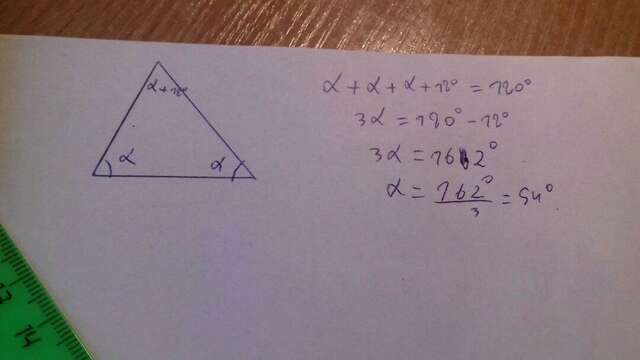 α + 18°
α
α
α + α + α + 18° = 180°
3α = 180° - 18°
3α = 162°
α = 162°/3 = 54°
14